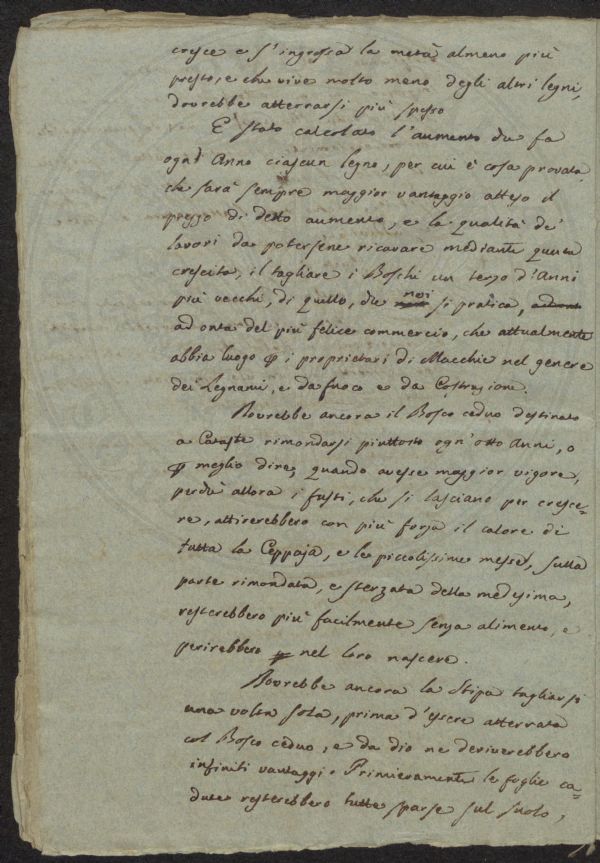 cresce e s'ingrossa la metà almeno più
presto, e che vive molto meno degli altri legni,
dovrebbe atterrarsi più spesso
È stato calcolato l'aumento che fa
ogni Anno ciascun legno, per cui è cosa provata,
che sarà sempre maggior vantaggio atteso il
prezzo di detto aumento, e la qualità de'
lavori da potersene ricavare mediante questa
crescita, il tagliare i Boschi un terzo d'Anni
più vecchi, di quello, che noi si pratica,
ad onta del più felice commercio, che attualmente
abbia luogo p i proprietari di Macchie nel genere
dei Legnami, e da fuoco e da Costruzione.
Dovrebbe ancora il Bosco ceduo destinato
a Cataste rimondarsi piuttosto ogn'otto Anni, o
p meglio dire, quando avesse maggior vigore,
perchè allora i fusti, che si lasciano per cresce=
re, attirerebbero con più forza il calore di
tutta la Ceppaja, e le piccolissime messe, sulla
parte rimondata, e sterzata della medesima,
resterebbero più facilmente senza alimento, e
perirebbero nel loro nascere.
Dovrebbe ancora la Stipa tagliarsi
una volta sola, prima d'essere atterrata
col Bosco ceduo, e da ciò ne deriverebbero
infiniti vantaggi. Primieramente le foglie ca=
dute resterebbero tutte sparse sul suolo,